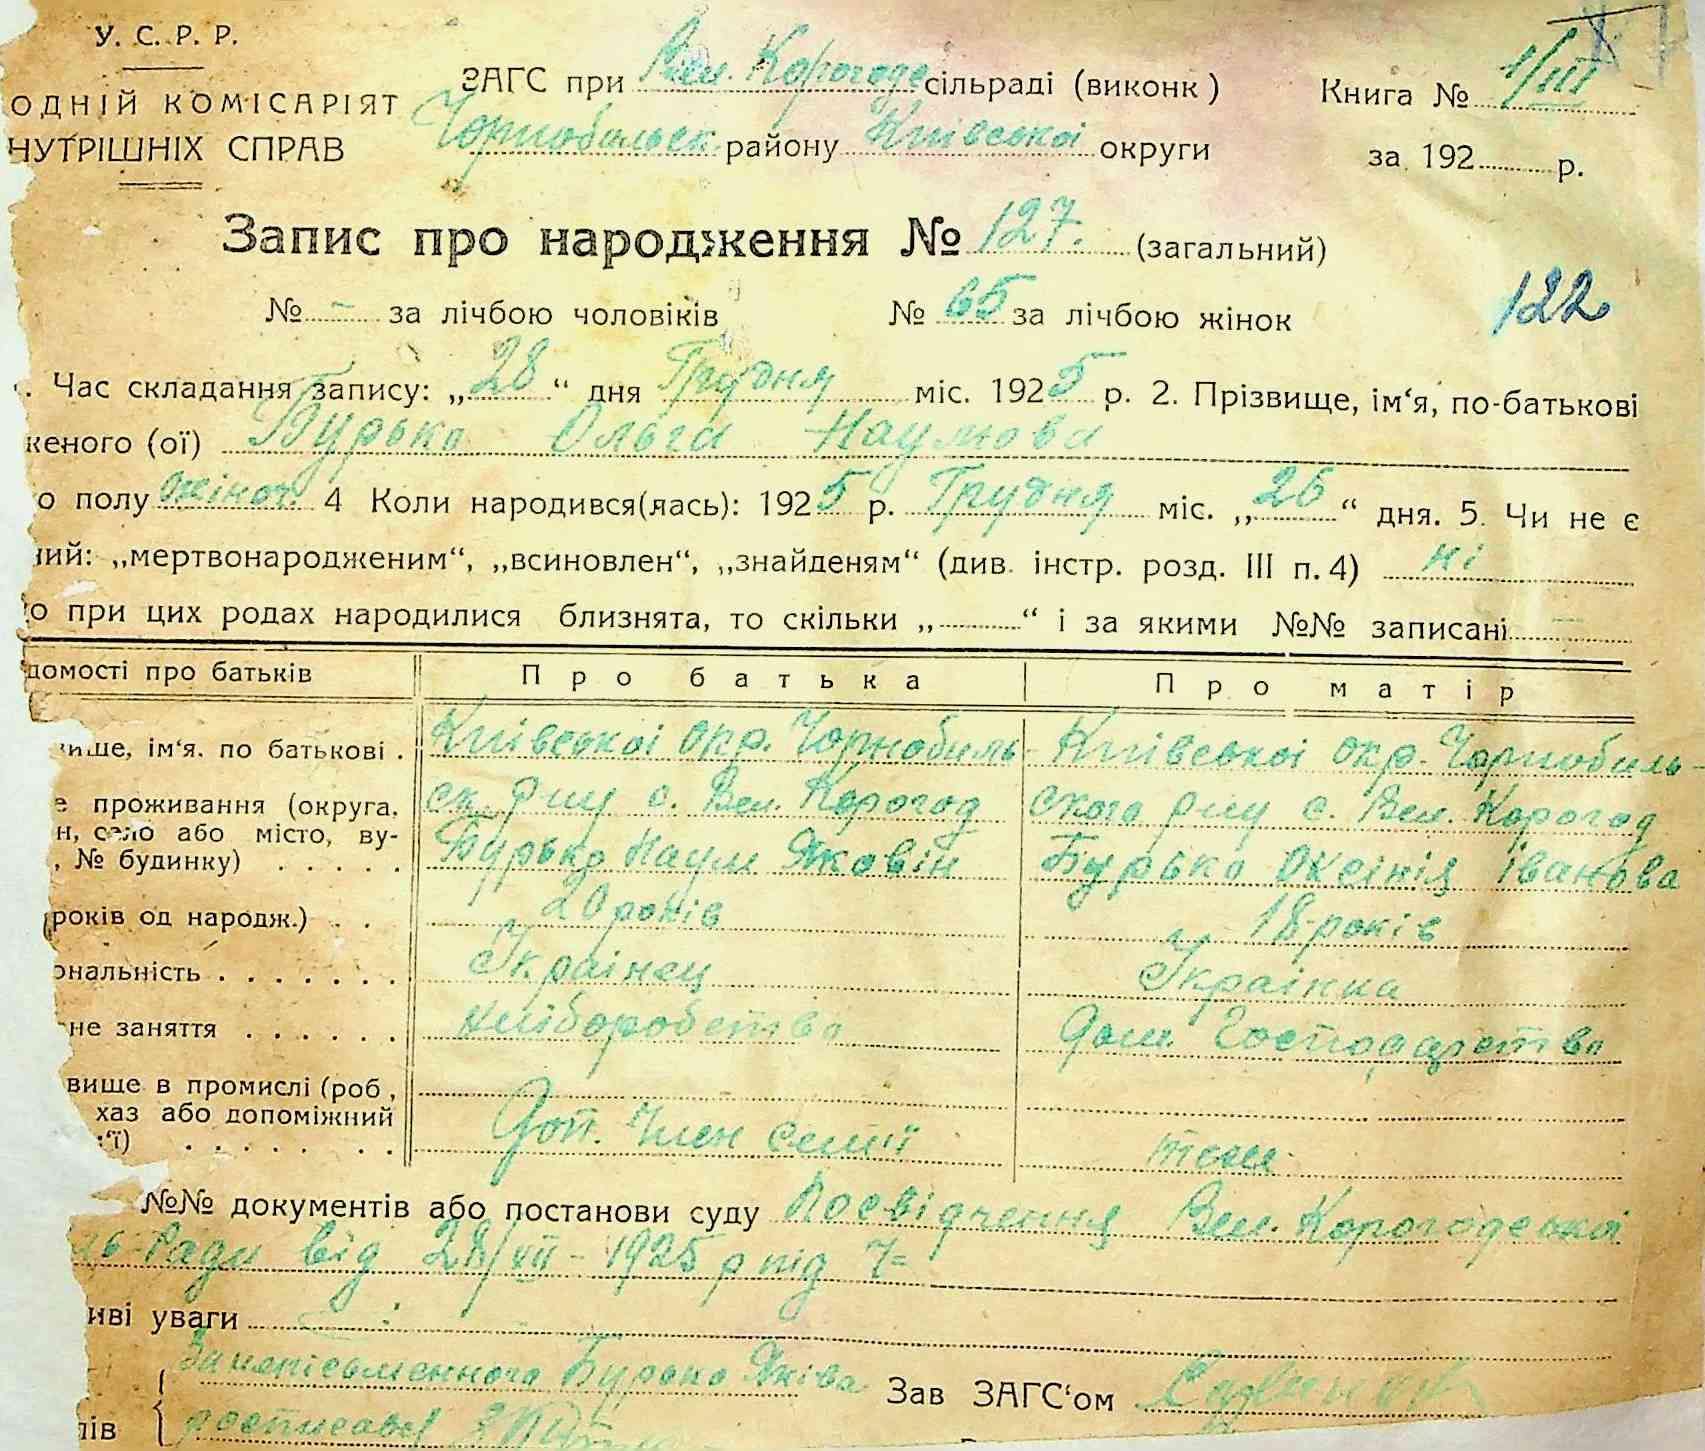 У. С. Р. Р.
ОДНІЙ КОМІСАРІЯТ
НУТРІШНІХ СПРАВ
ЗАГС при Вел. Корогоде сільраді (виконк)
Чорнобильск району Київської округи
Книга № 1/III
за 192 р.
Запис про народження № 127. (загальний)
№ - за лічбою чоловіків № 65 за лічбою жінок
122
. Час складання запису: „28“ дня Грудня міс. 1925 р. 2. Прізвище, ім‘я, по-батькові
женого (ої) Бурько Ольга Наумова
о полу жіноч. 4 Коли народився(лась): 1925 р. Грудня міс. „26“ дня. 5. Чи не є
ний: „мертвонародженим“, „всиновлен“, „знайденям“ (див. інстр. розд. III п. 4) ні
о при цих родах народилися близнята, то скільки „ “ і за якими №№ записані -
домості про батьків Про батька Про матір
вище, ім‘я. по батькові . Київської окр. Чорнобиль- Київської окр. Чорнобиль-
е проживання (округа, ск. р-ну с. Вел. Корогод ского р-ну с. Вел. Корогод
н, село або місто, ву-
, № будинку) . . . . . Бурько Наум Яковін Бурько Оксінія Іванова
років од народж.) . . 20 років 18 років
ональність . . . . . . . Українец Українка
не заняття . . . . . . Хліборобство Дом. Господарство
вище в промислі (роб ,
хаз або допоміжний Доп. Член семії теж
‘ї) . . . . . . .
№№ документів або постанови суду Посвідчення Вел. Корогодської
Ради від 28/XII - 1925 р під 7=
иві уваги
Занепісьменного Бурько Яківа
Зав ЗАГС‘ом
ів росписавсі